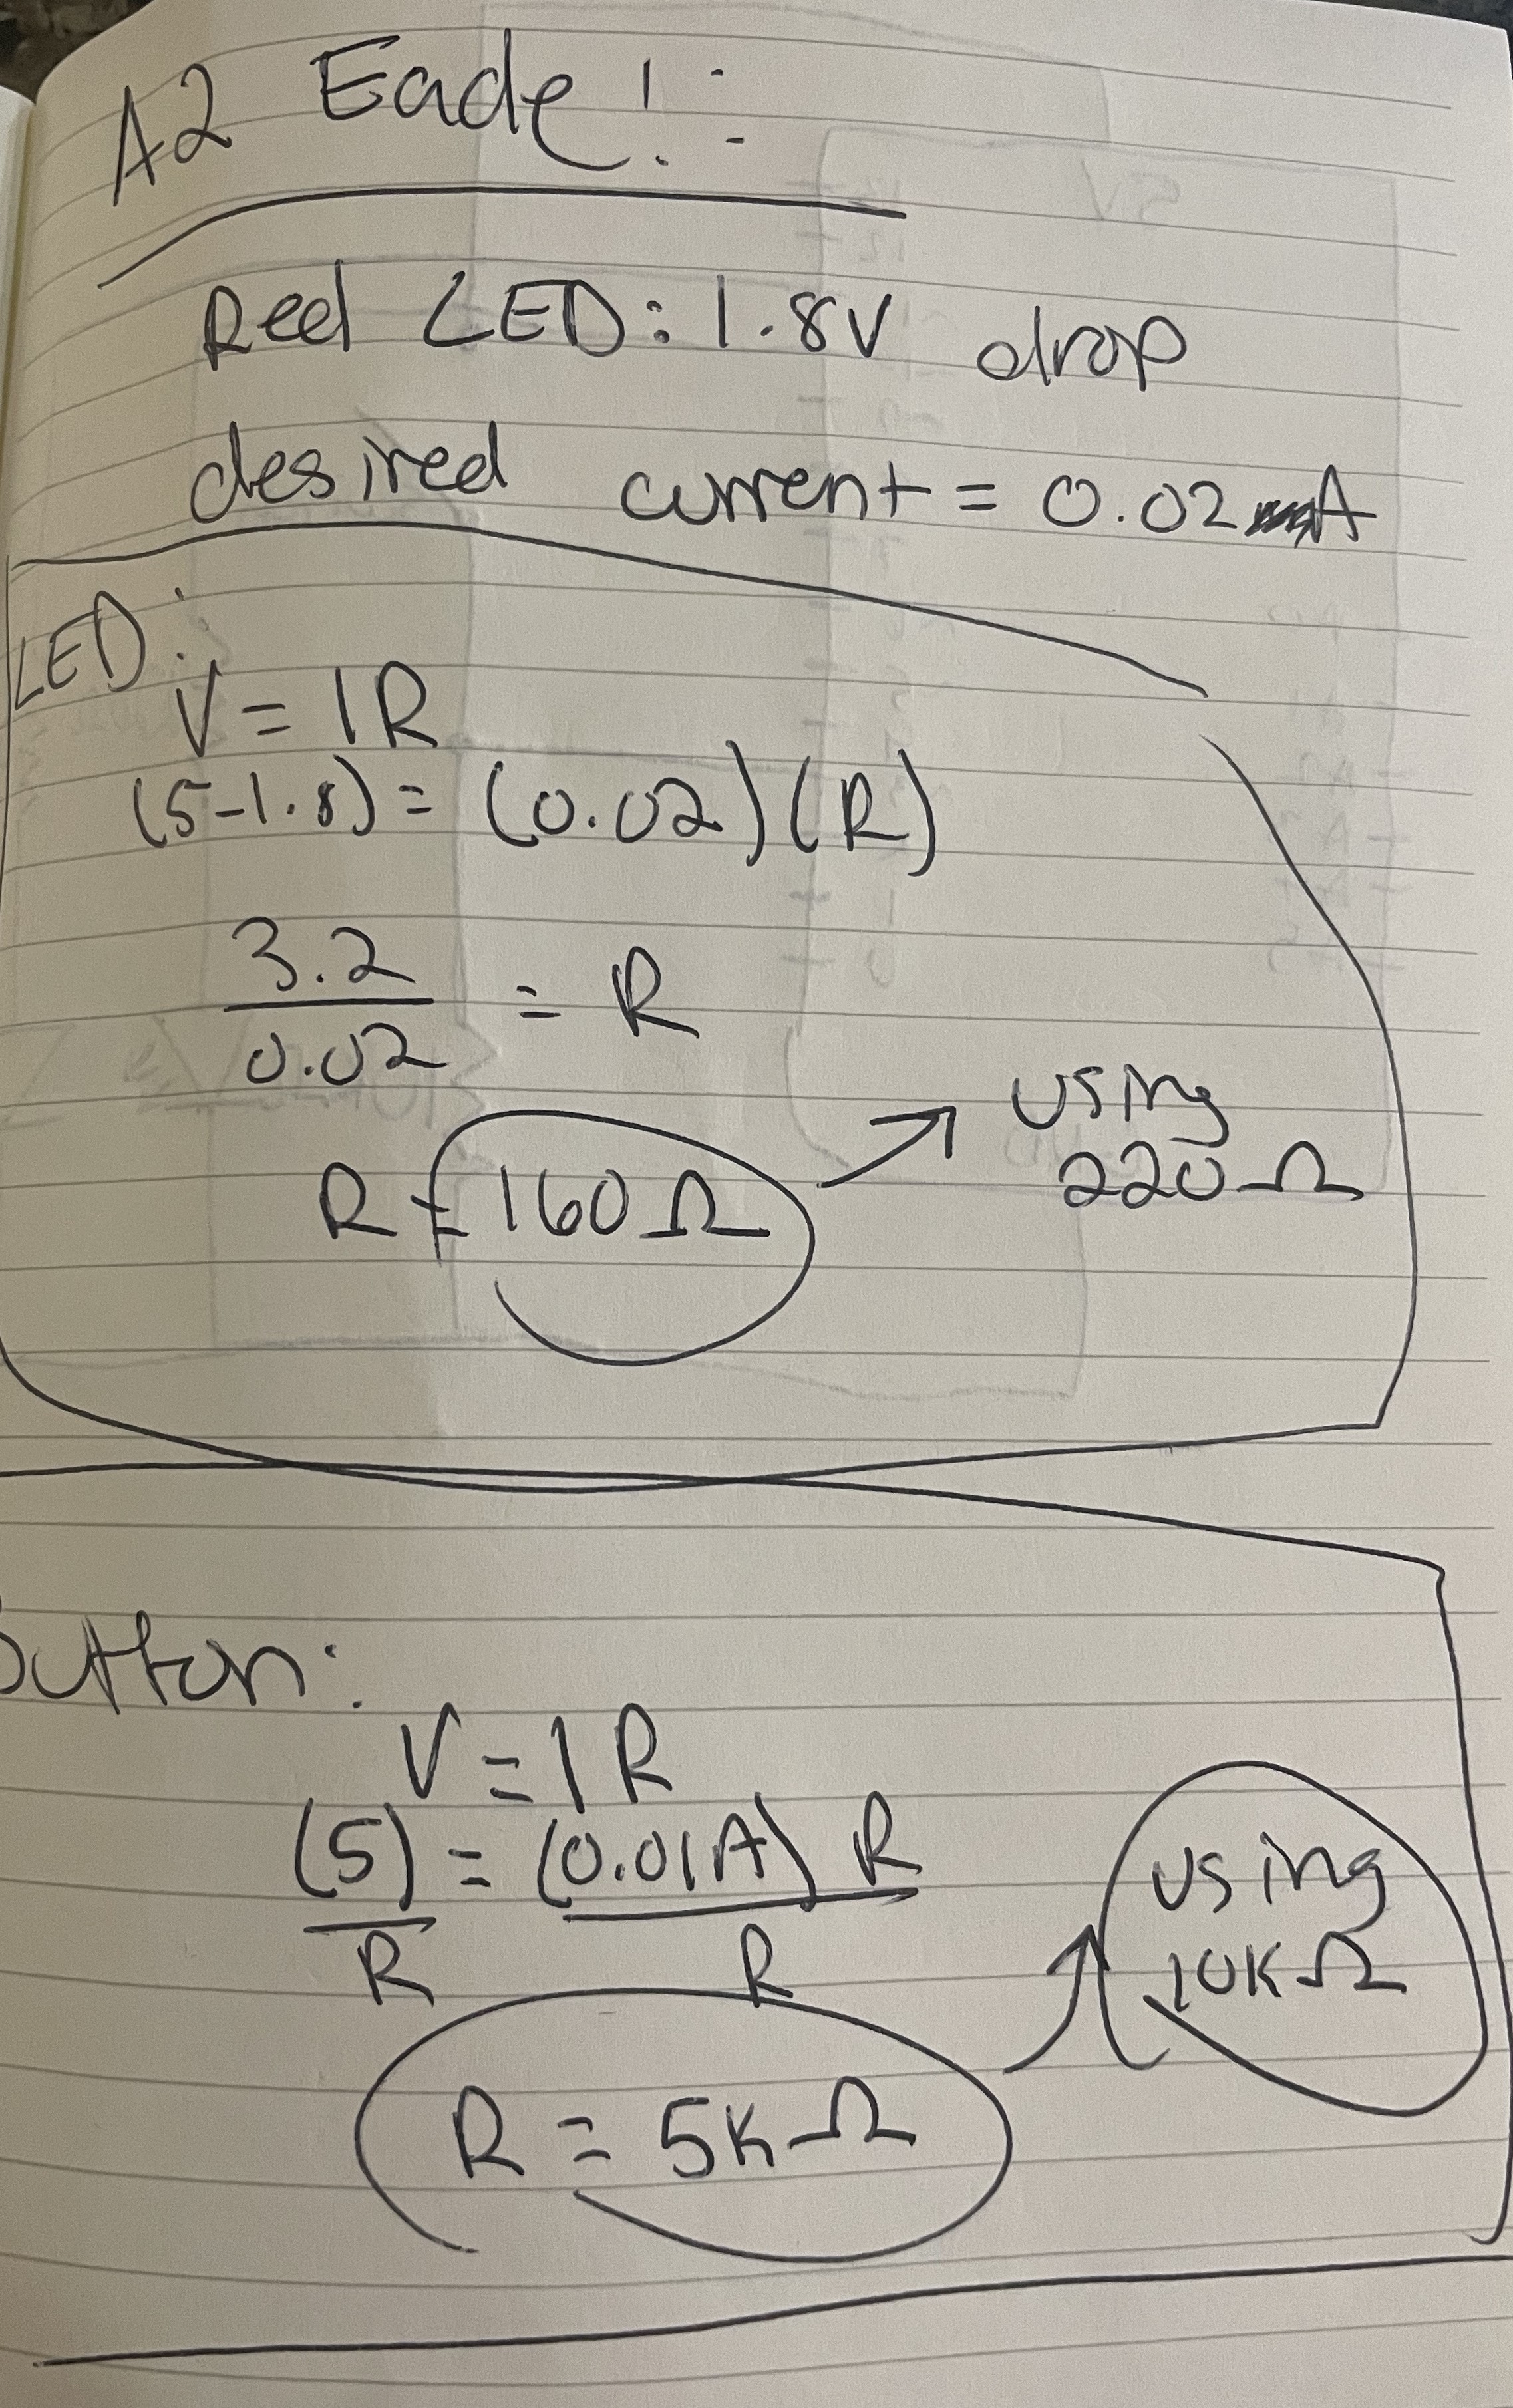 A2 Eade!:
Red LED: 1.8V drop
desired current = 0.02 A
LED:
V = IR
(5-1.8) = (0.02)(R)
3.2
0.02
= R
R = 160Ω → using
220Ω
Button:
V = IR
(5) = (0.01A) R
R R
using
10KΩ
R = 5KΩ